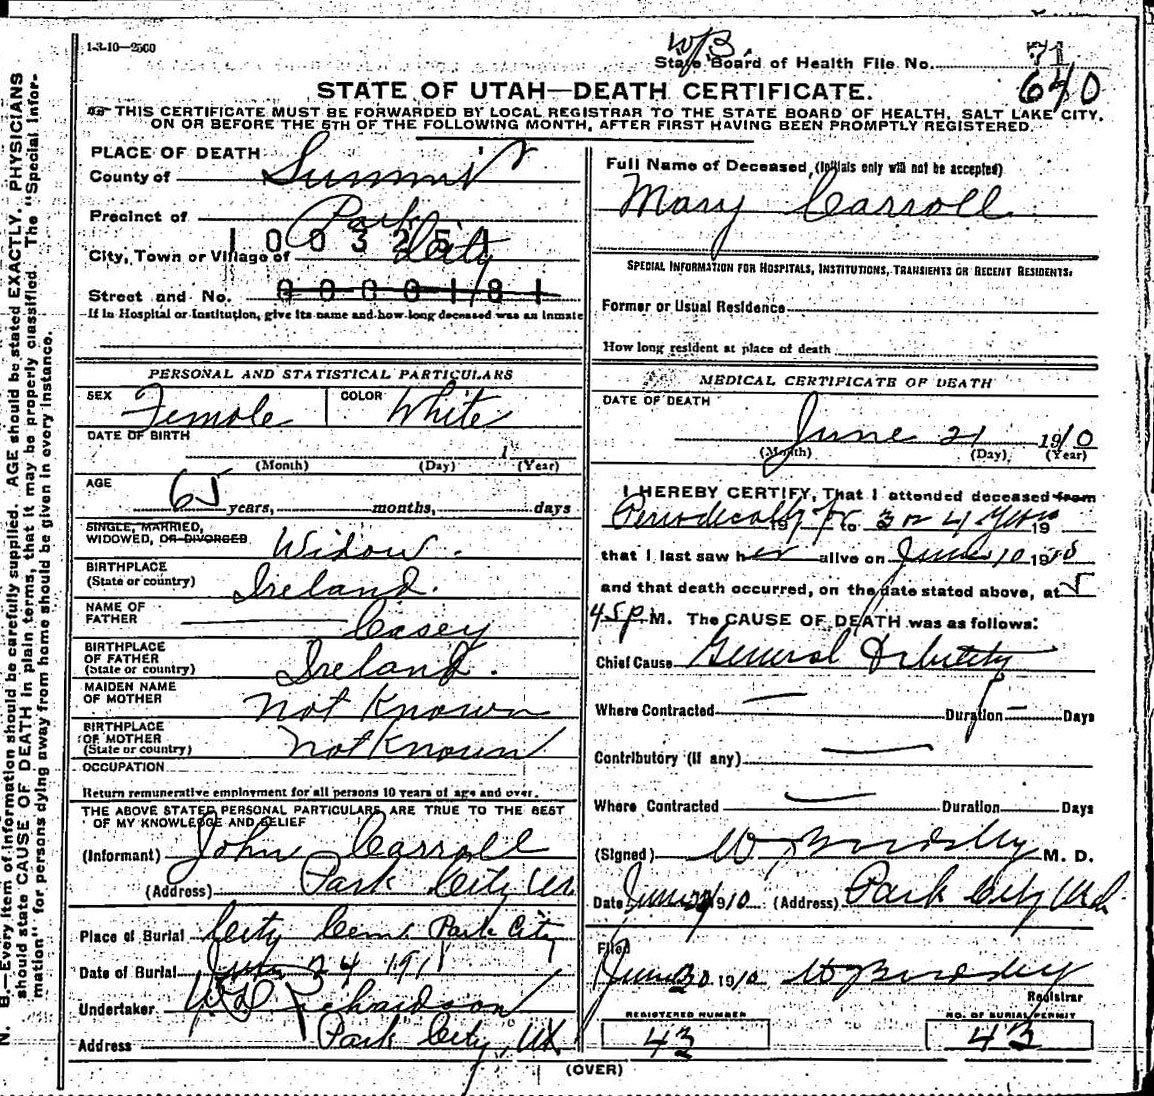 1-3-10—2500
State Board of Health File No. 71
640
STATE OF UTAH—DEATH CERTIFICATE.
THIS CERTIFICATE MUST BE FORWARDED BY LOCAL REGISTRAR TO THE STATE BOARD OF HEALTH, SALT LAKE CITY,
ON OR BEFORE THE 5TH OF THE FOLLOWING MONTH, AFTER FIRST HAVING BEEN PROMPTLY REGISTERED.
PLACE OF DEATH
County of Summit
Precinct of Park
1003251
City, Town or Village of City
Street and No. 0000181
If in Hospital or Institution, give its name and how long deceased was an inmate
PERSONAL AND STATISTICAL PARTICULARS
SEX Female COLOR White
DATE OF BIRTH
1
(Month) (Day) (Year)
AGE
65 years, months, days
SINGLE, MARRIED,
WIDOWED, OR DIVORCED Widow.
BIRTHPLACE
(State or country) Ireland.
NAME OF
FATHER Casey
BIRTHPLACE
OF FATHER
(State or country) Ireland.
MAIDEN NAME
OF MOTHER Not Known
BIRTHPLACE
OF MOTHER
(State or country) Not Known
OCCUPATION
Return remunerative employment for all persons 10 years of age and over.
THE ABOVE STATED PERSONAL PARTICULARS ARE TRUE TO THE BEST
OF MY KNOWLEDGE AND BELIEF
(Informant) John Carroll
(Address) Park City Ut
Place of Burial City Cem. Park City
Date of Burial June 24 191
Undertaker Richardson
Address Park City, Ut
Full Name of Deceased, (Initials only will not be accepted)
Mary Carroll
SPECIAL INFORMATION FOR HOSPITALS, INSTITUTIONS, TRANSIENTS OR RECENT RESIDENTS:
Former or Usual Residence
How long resident at place of death
MEDICAL CERTIFICATE OF DEATH
DATE OF DEATH
June 21 1910
(Month) (Day) (Year)
I HEREBY CERTIFY, That I attended deceased from
Periodically for 19 to 3 or 4 years 19
that I last saw her alive on June 10 1910
and that death occurred, on the date stated above, at 5
45 p M. The CAUSE OF DEATH was as follows:
Chief Cause General Debility
Where Contracted — Duration — Days
Contributory (if any) —
Where Contracted — Duration Days
(Signed) M. D.
Date June 1910 (Address) Park City Utah
Filed
June 30 1910
Registrar
REGISTERED NUMBER
43
NO. OF BURIAL PERMIT
43
(OVER)
N. B.—Every item of information should be carefully supplied. AGE should be stated EXACTLY. PHYSICIANS
should state CAUSE OF DEATH in plain terms, that it may be properly classified. The "Special Infor-
mation" for persons dying away from home should be given in every instance.